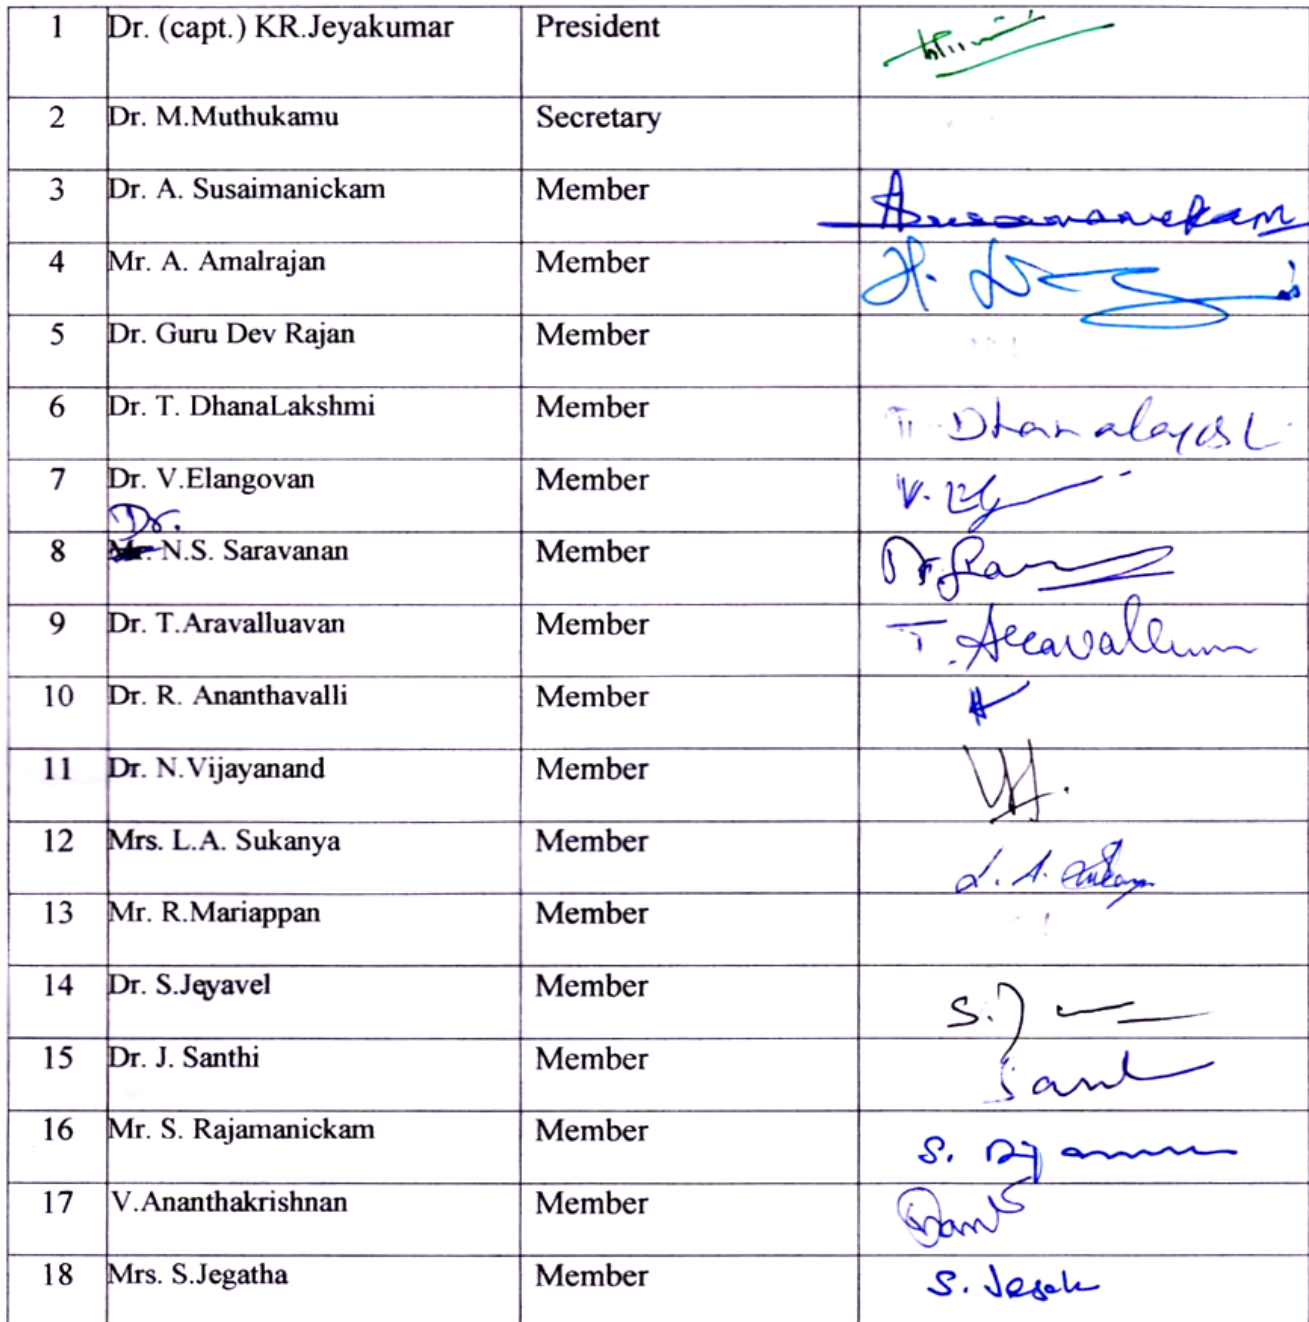 1 Dr. (capt.) KR.Jeyakumar President
2 Dr. M.Muthukamu Secretary
3 Dr. A. Susaimanickam Member
4 Mr. A. Amalrajan Member
5 Dr. Guru Dev Rajan Member
6 Dr. T. DhanaLakshmi Member
7 Dr. V.Elangovan Member
Dr.
8 Mr. N.S. Saravanan Member
9 Dr. T.Aravalluavan Member
10 Dr. R. Ananthavalli Member
11 Dr. N.Vijayanand Member
12 Mrs. L.A. Sukanya Member
13 Mr. R.Mariappan Member
14 Dr. S.Jeyavel Member
15 Dr. J. Santhi Member
16 Mr. S. Rajamanickam Member
17 V.Ananthakrishnan Member
18 Mrs. S.Jegatha Member